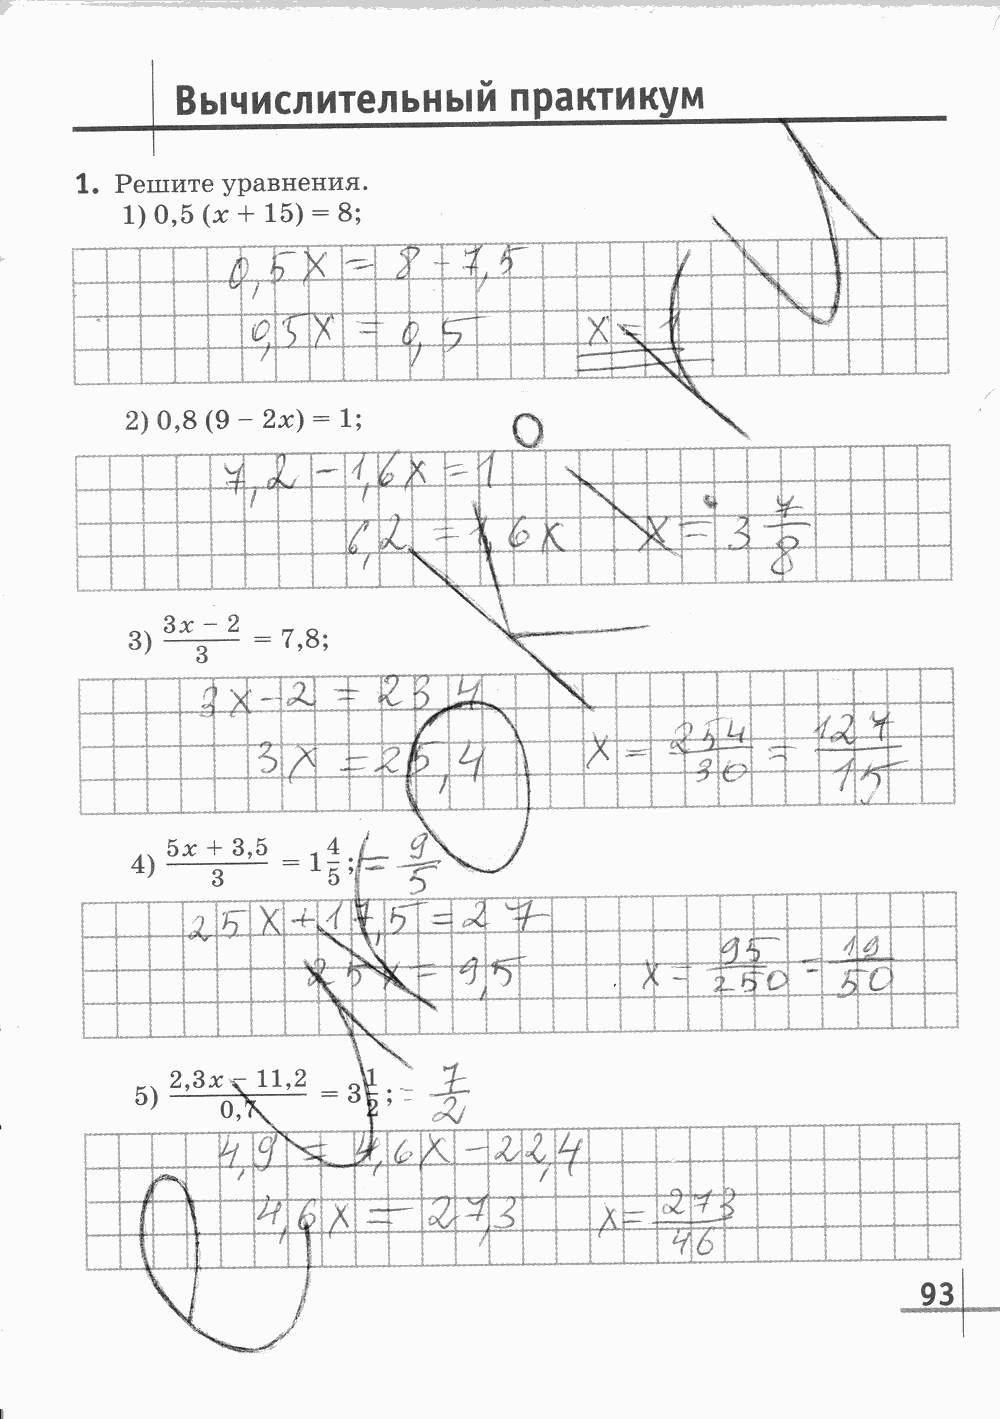 Вычислительный практикум
1. Решите уравнения.
1) 0,5 (x + 15) = 8;
0,5x = 8 - 7,5
0,5x = 0,5 x = 1
2) 0,8 (9 − 2x) = 1;
7,2 - 1,6x = 1
6,2 = 1,6x x = 3 7/8
3) (3x − 2)/3 = 7,8;
3x - 2 = 23,4
3x = 25,4 x = 254/30 = 127/15
4) (5x + 3,5)/3 = 1 4/5; = 9/5
25x + 17,5 = 27
25x = 9,5 x = 95/250 = 19/50
5) (2,3x − 11,2)/0,7 = 3 1/2; = 7/2
4,9 = 4,6x - 22,4
4,6x = 27,3 x = 273/46
93